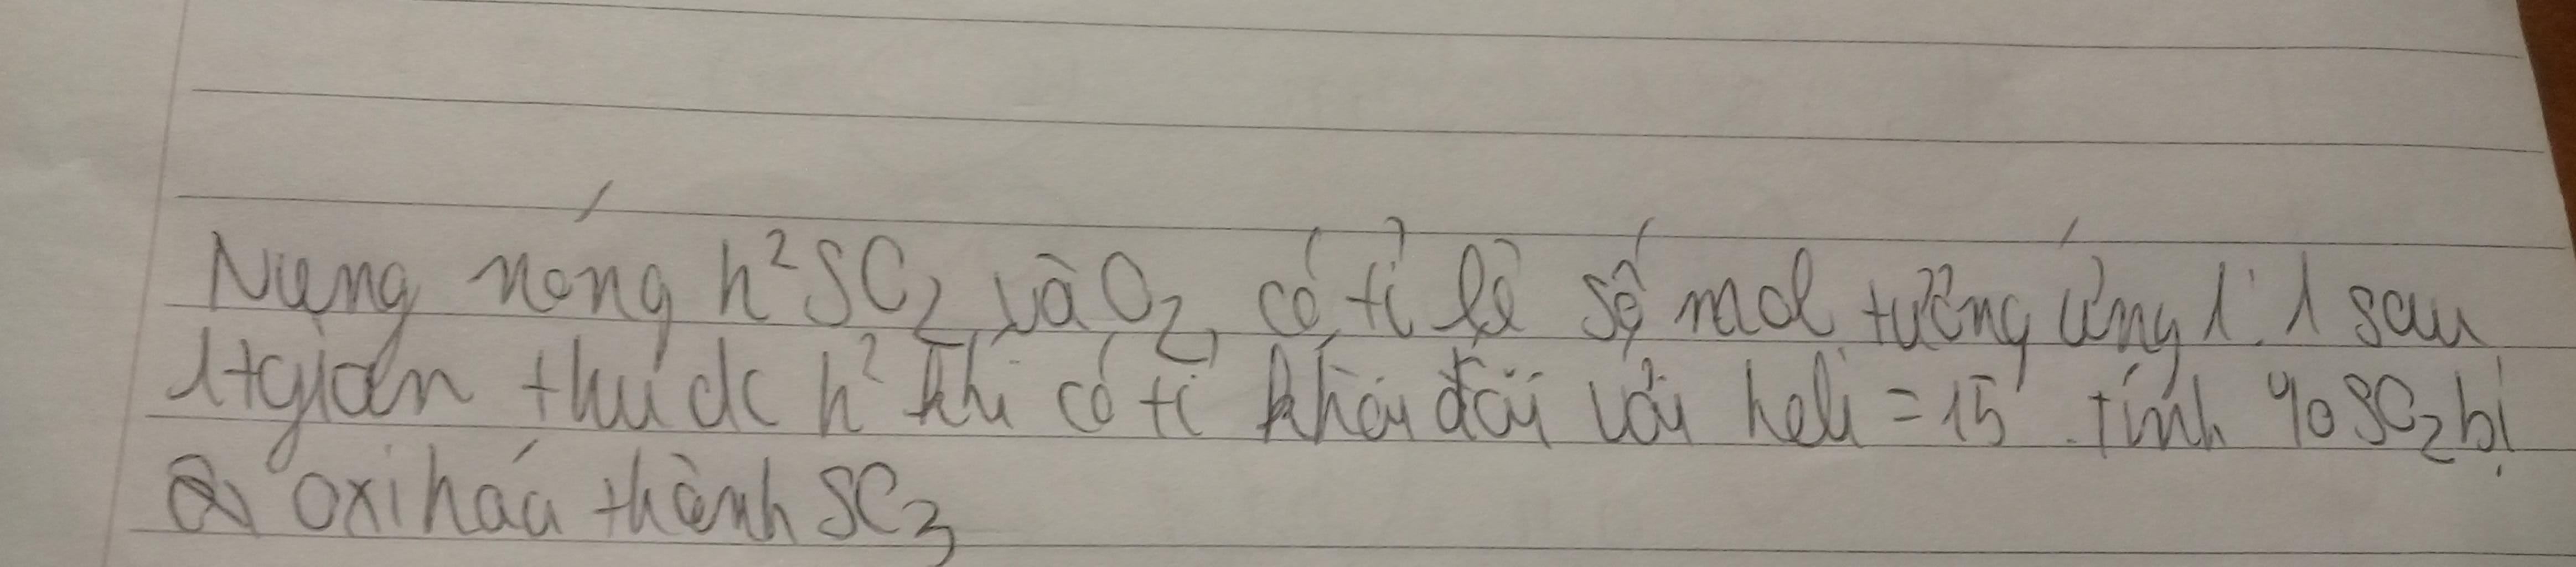 Nung nóng h² SO₂ và O₂ có tỉ lệ số mol tương ứng 1:1 sau
1 tgian thu dc h² khí có tỉ khối đối với heli = 15. tính % SO₂ bị
oxi hóa thành SO₃